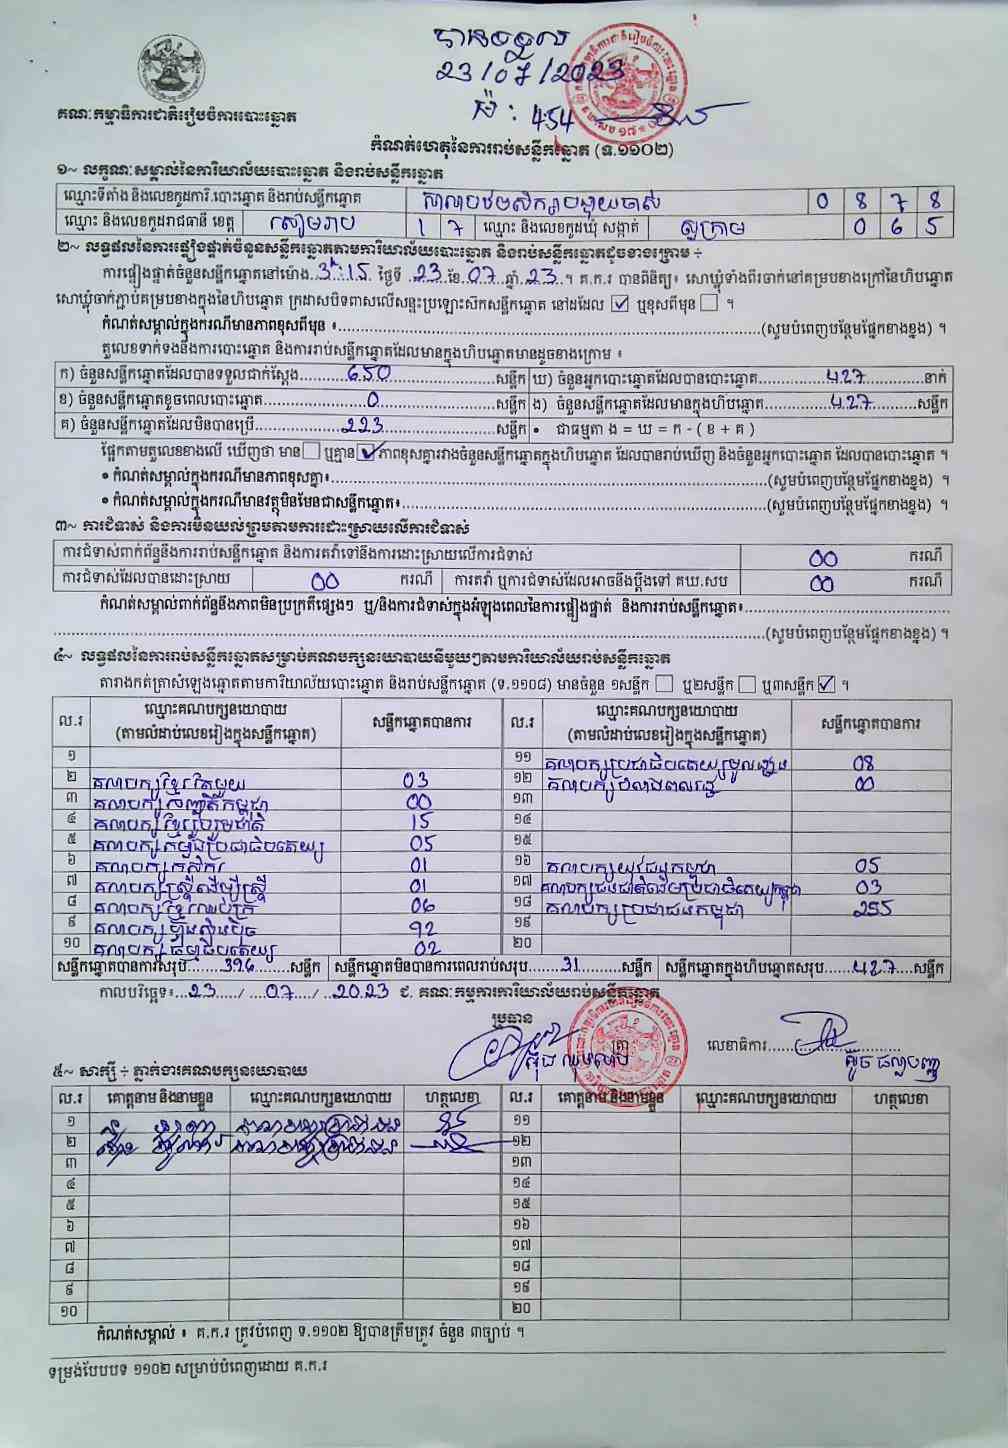 បានទទួល
23/07/2023
ម៉: 4:54
គណៈកម្មាធិការជាតិរៀបចំការបោះឆ្នោត
កំណត់ហេតុនៃការរាប់សន្លឹកឆ្នោត (ទ.១១០២)
១~ លក្ខណៈសម្គាល់នៃការិយាល័យបោះឆ្នោត និងរាប់សន្លឹកឆ្នោត
ឈ្មោះទីតាំង និងលេខកូដការិ.បោះឆ្នោត និងរាប់សន្លឹកឆ្នោត 0 8 7 8
ឈ្មោះ និងលេខកូដរាជធានី ខេត្ត សៀមរាប 1 7 ឈ្មោះ និងលេខកូដឃុំ សង្កាត់ ស្លក្រាម 0 6 5
២~ លទ្ធផលនៃការផ្ទៀងផ្ទាត់ចំនួនសន្លឹកឆ្នោតតាមការិយាល័យបោះឆ្នោត និងរាប់សន្លឹកឆ្នោតដូចខាងក្រោម ÷
ការផ្ទៀងផ្ទាត់ចំនួនសន្លឹកឆ្នោតនៅម៉ោង..3h:15.. ថ្ងៃទី ..23..ខែ..07..ឆ្នាំ..23..។ គ.ក.រ បានពិនិត្យ៖ សោឃ្លុំទាំងពីរចាក់នៅគម្របខាងក្រៅនៃហិបឆ្នោត
សោឃ្លុំចាក់ភ្ជាប់គម្របខាងក្នុងនៃហិបឆ្នោត ក្រដាសបិទពាសលើសន្ទះប្រឡោះសឹកសន្លឹកឆ្នោត នៅដដែល ☑ ឬខុសពីមុន ☐ ។
កំណត់សម្គាល់ក្នុងករណីមានភាពខុសពីមុន ៖..........(សូមបំពេញបន្ថែមផ្នែកខាងខ្នង) ។
តួលេខទាក់ទងនឹងការបោះឆ្នោត និងការរាប់សន្លឹកឆ្នោតដែលមានក្នុងហិបឆ្នោតមានដូចខាងក្រោម ៖
ក) ចំនួនសន្លឹកឆ្នោតដែលបានទទួលជាក់ស្តែង..........650..........សន្លឹក ឃ) ចំនួនអ្នកបោះឆ្នោតដែលបានបោះឆ្នោត..........427..........នាក់
ខ) ចំនួនសន្លឹកឆ្នោតខូចពេលបោះឆ្នោត..........0..........សន្លឹក ង) ចំនួនសន្លឹកឆ្នោតដែលមានក្នុងហិបឆ្នោត..........427..........សន្លឹក
គ) ចំនួនសន្លឹកឆ្នោតដែលមិនបានប្រើ..........223..........សន្លឹក • ជាធម្មតា ង = ឃ = ក - ( ខ + គ )
ផ្អែកតាមតួលេខខាងលើ ឃើញថា មាន ☐ ឬគ្មាន ☑ ភាពខុសគ្នារវាងចំនួនសន្លឹកឆ្នោតក្នុងហិបឆ្នោត ដែលបានរាប់ឃើញ និងចំនួនអ្នកបោះឆ្នោត ដែលបានបោះឆ្នោត ។
• កំណត់សម្គាល់ក្នុងករណីមានភាពខុសគ្នា៖..........(សូមបំពេញបន្ថែមផ្នែកខាងខ្នង) ។
• កំណត់សម្គាល់ក្នុងករណីមានវត្ថុមិនមែនជាសន្លឹកឆ្នោត៖..........(សូមបំពេញបន្ថែមផ្នែកខាងខ្នង) ។
៣~ ការជំទាស់ និងការមិនយល់ព្រមតាមការដោះស្រាយលើការជំទាស់
ការជំទាស់ពាក់ព័ន្ធនឹងការរាប់សន្លឹកឆ្នោត និងការតវ៉ាទៅនឹងការដោះស្រាយលើការជំទាស់ 00 ករណី
ការជំទាស់ដែលបានដោះស្រាយ 00 ករណី ការតវ៉ា ឬការជំទាស់ដែលអាចនឹងប្តឹងទៅ គឃ.សប 00 ករណី
កំណត់សម្គាល់ពាក់ព័ន្ធនឹងភាពមិនប្រក្រតីផ្សេងៗ ឬ/និងការជំទាស់ក្នុងអំឡុងពេលនៃការផ្ទៀងផ្ទាត់ និងការរាប់សន្លឹកឆ្នោត៖..........
..........(សូមបំពេញបន្ថែមផ្នែកខាងខ្នង) ។
៤~ លទ្ធផលនៃការរាប់សន្លឹកឆ្នោតសម្រាប់គណបក្សនយោបាយនីមួយៗតាមការិយាល័យរាប់សន្លឹកឆ្នោត
តារាងកត់ត្រាសំឡេងឆ្នោតតាមការិយាល័យបោះឆ្នោត និងរាប់សន្លឹកឆ្នោត (ទ.១១០៨) មានចំនួន ១សន្លឹក ☐ ឬ២សន្លឹក ☐ ឬ៣សន្លឹក ☑ ។
ល.រ ឈ្មោះគណបក្សនយោបាយ (តាមលំដាប់លេខរៀងក្នុងសន្លឹកឆ្នោត) សន្លឹកឆ្នោតបានការ ល.រ ឈ្មោះគណបក្សនយោបាយ (តាមលំដាប់លេខរៀងក្នុងសន្លឹកឆ្នោត) សន្លឹកឆ្នោតបានការ
១ ១១ គណបក្សប្រជាធិបតេយ្យមូលដ្ឋាន 08
២ គណបក្សខ្មែរតែមួយ 03 ១២ គណបក្សបំលាស់ពលរដ្ឋ 00
៣ គណបក្សសញ្ជាតិកម្ពុជា 00 ១៣
៤ គណបក្សខ្មែររួបរួមជាតិ 15 ១៤
៥ គណបក្សកម្លាំងប្រជាធិបតេយ្យ 05 ១៥
៦ គណបក្សកសិករ 01 ១៦ គណបក្សយុវជនកម្ពុជា 05
៧ គណបក្សស្ត្រីដើម្បីស្ត្រី 01 ១៧ គណបក្សជនជាតិដើមប្រជាធិបតេយ្យកម្ពុជា 03
៨ គណបក្សខ្មែរឈប់ក្រ 06 ១៨ គណបក្សប្រជាជនកម្ពុជា 255
៩ គណបក្សហ្វ៊ុនស៊ិនប៉ិច 92 ១៩
១០ គណបក្សធម្មាធិបតេយ្យ 02 ២០
សន្លឹកឆ្នោតបានការសរុប........396........សន្លឹក សន្លឹកឆ្នោតមិនបានការពេលរាប់សរុប........31........សន្លឹក សន្លឹកឆ្នោតក្នុងហិបឆ្នោតសរុប......427....សន្លឹក
កាលបរិច្ឆេទ៖...23...../....07...../..2023 ជ. គណៈកម្មការការិយាល័យរាប់សន្លឹកឆ្នោត
ប្រធាន
ត្រា លេខាធិការ..........
៥~ សាក្សី ÷ ភ្នាក់ងារគណបក្សនយោបាយ
ល.រ គោត្តនាម និងនាមខ្លួន ឈ្មោះគណបក្សនយោបាយ ហត្ថលេខា ល.រ គោត្តនាម និងនាមខ្លួន ឈ្មោះគណបក្សនយោបាយ ហត្ថលេខា
១ ១១
២ ១២
៣ ១៣
៤ ១៤
៥ ១៥
៦ ១៦
៧ ១៧
៨ ១៨
៩ ១៩
១០ ២០
កំណត់សម្គាល់ ៖ គ.ក.រ ត្រូវបំពេញ ទ.១១០២ ឱ្យបានត្រឹមត្រូវ ចំនួន ៣ច្បាប់ ។
ទម្រង់បែបបទ ១១០២ សម្រាប់បំពេញដោយ គ.ក.រ